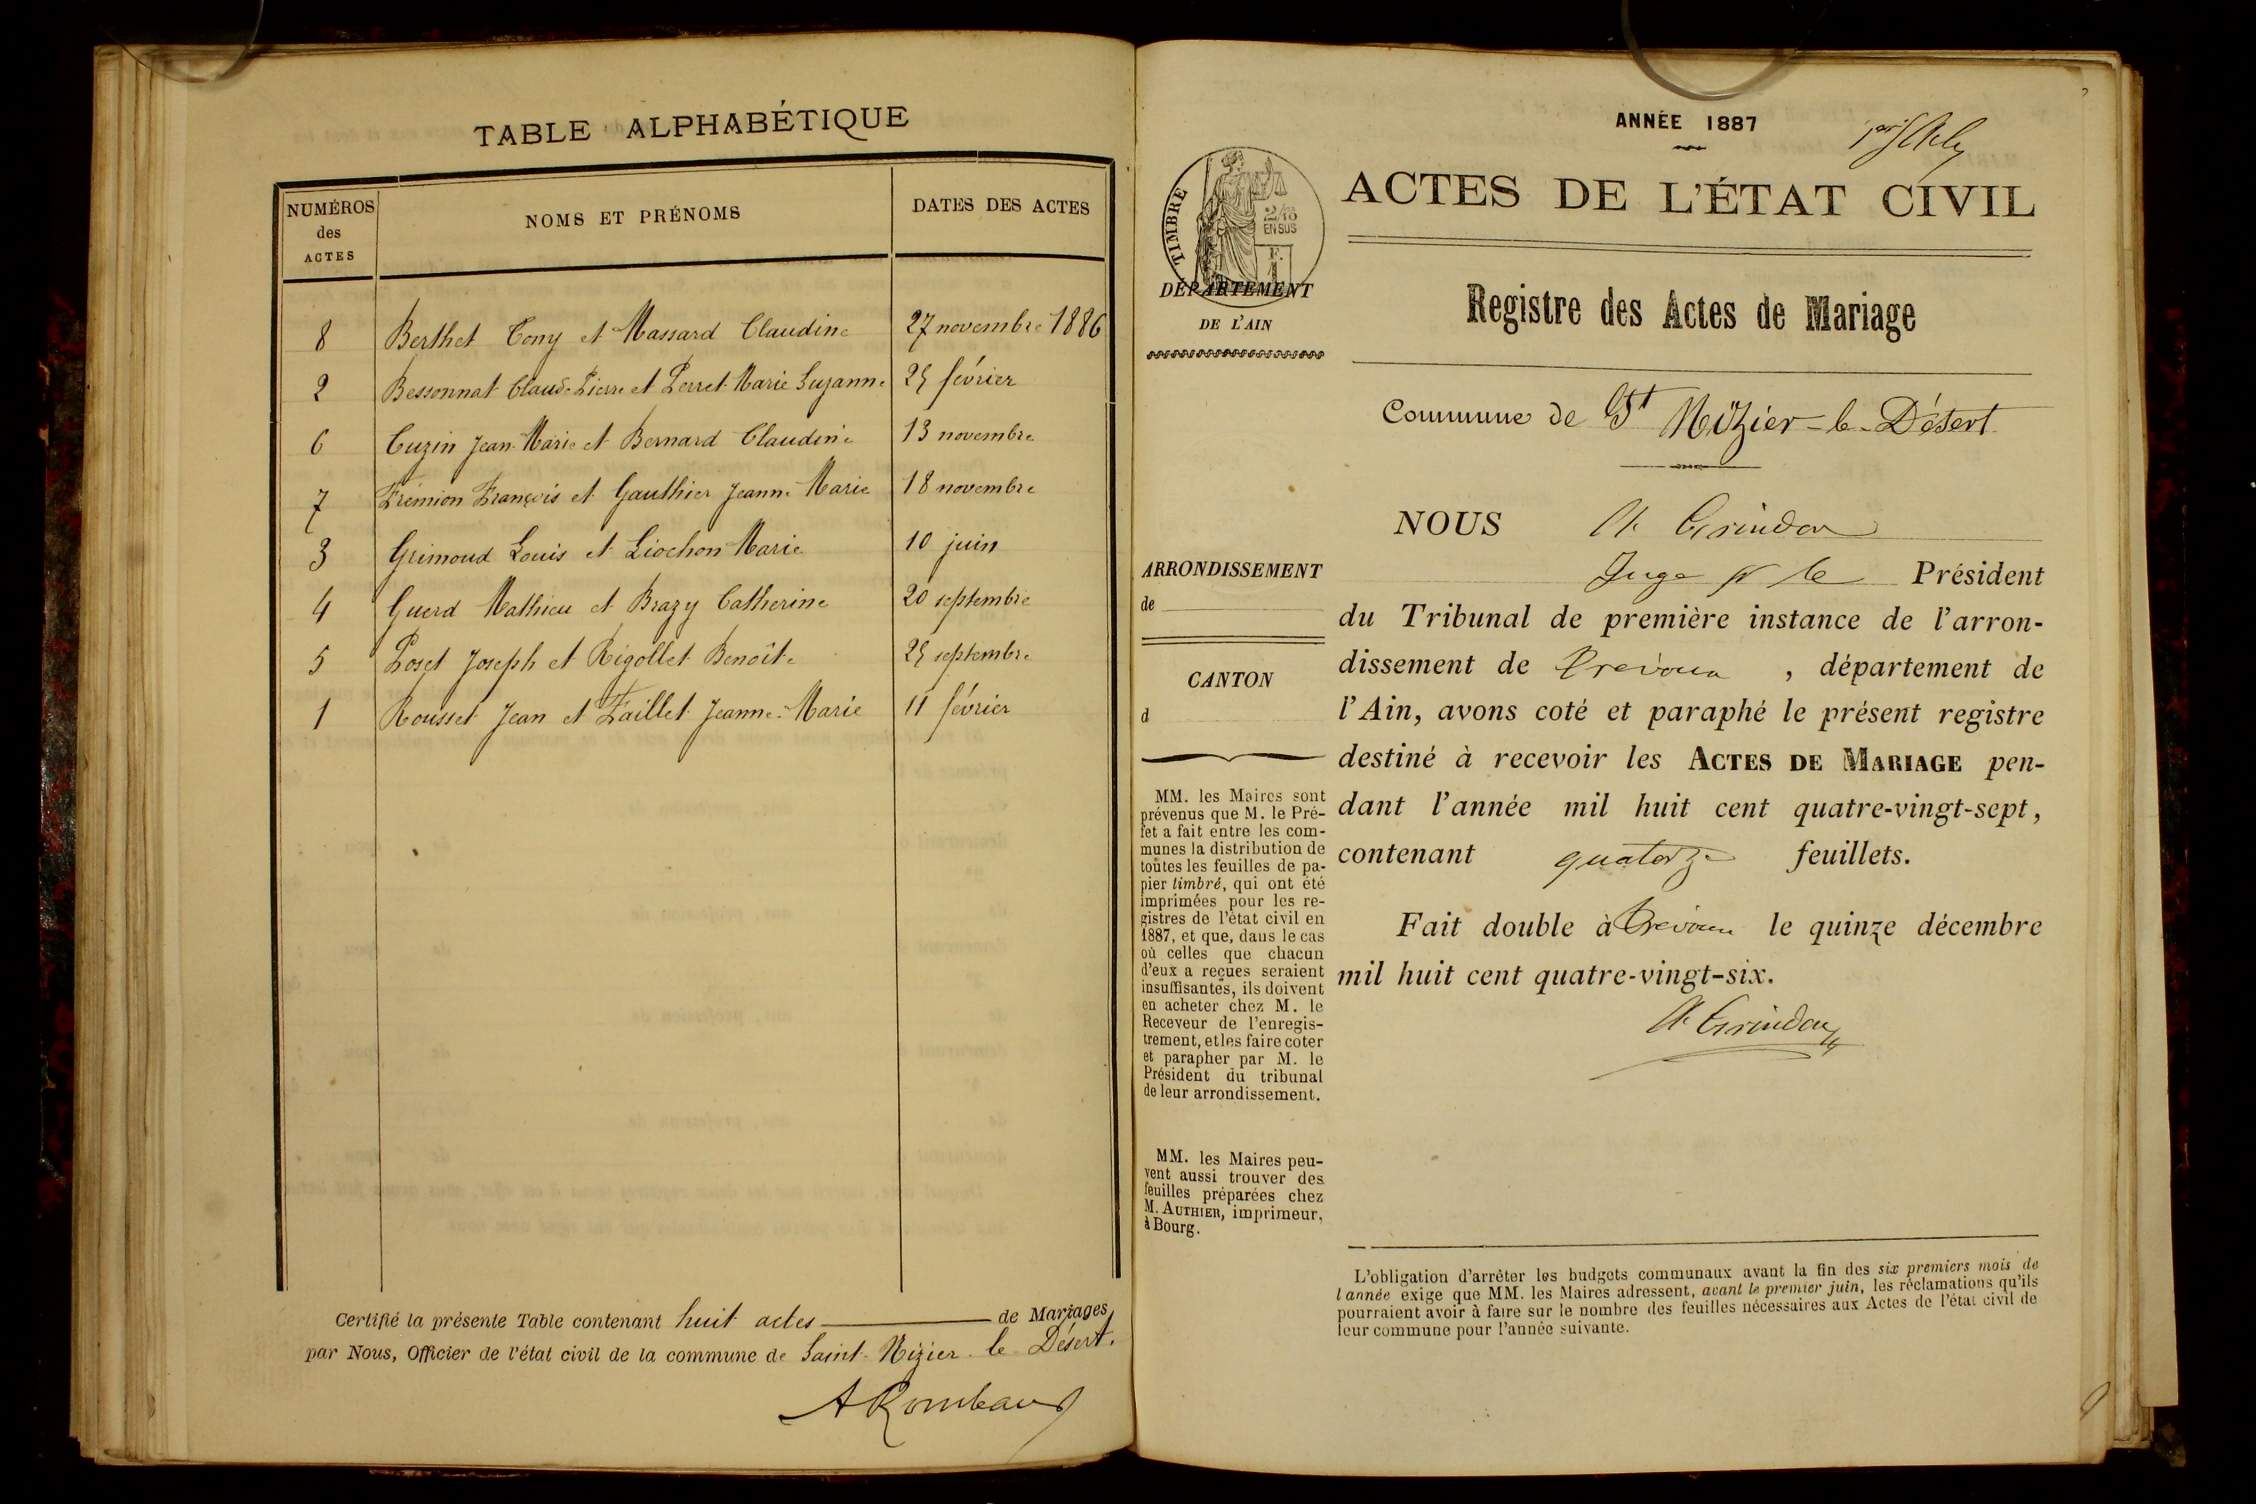 TABLE ALPHABÉTIQUE
NUMÉROS des ACTES | NOMS ET PRÉNOMS | DATES DES ACTES
8 Berthet Tony et Massard Claudine 27 novembre 1886
2 Bessonnat Claude Pierre et Perret Marie Suzanne 25 février
6 Cuzin Jean-Marie et Bernard Claudine 13 novembre
7 Frémion François et Gauthier Jeanne Marie 18 novembre
3 Grimoud Louis et Liochon Marie 10 juin
4 Guerd Mathieu et Brazy Catherine 20 septembre
5 Joseph et Rigollet Benoîte 25 septembre
1 Rousset Jean et Faillet Jeanne-Marie 11 février
Certifié la présente Table contenant huit actes de Mariages
par Nous, Officier de l'état civil de la commune de Saint-Nizier le Désert.
ARombaud
ANNÉE 1887
TIMBRE
2/10
EN SUS
1F
ACTES DE L'ÉTAT CIVIL
DÉPARTEMENT
DE L'AIN
Registre des Actes de Mariage
Commune de St Nizier-le-Désert
ARRONDISSEMENT
de
CANTON
d
MM. les Maires sont
prévenus que M. le Pré-
fet a fait entre les com-
munes la distribution de
toutes les feuilles de pa-
pier timbré, qui ont été
imprimées pour les re-
gistres de l'état civil en
1887, et que, dans le cas
où celles que chacun
d'eux a reçues seraient
insuffisantes, ils doivent
en acheter chez M. le
Receveur de l'enregis-
trement, et les faire coter
et parapher par M. le
Président du tribunal
de leur arrondissement.
MM. les Maires peu-
vent aussi trouver des
feuilles préparées chez
M. AUTHIER, imprimeur,
à Bourg.
NOUS Grindon
Juge pr le Président
du Tribunal de première instance de l'arron-
dissement de Trévoux , département de
l'Ain, avons coté et paraphé le présent registre
destiné à recevoir les ACTES DE MARIAGE pen-
dant l'année mil huit cent quatre-vingt-sept,
contenant quatorze feuillets.
Fait double à Trévoux le quinze décembre
mil huit cent quatre-vingt-six.
Grindon
L'obligation d'arrêter les budgets communaux avant la fin des six premiers mois de
l'année exige que MM. les Maires adressent, avant le premier juin, les réclamations qu'ils
pourraient avoir à faire sur le nombre des feuilles nécessaires aux Actes de l'état civil de
leur commune pour l'année suivante.